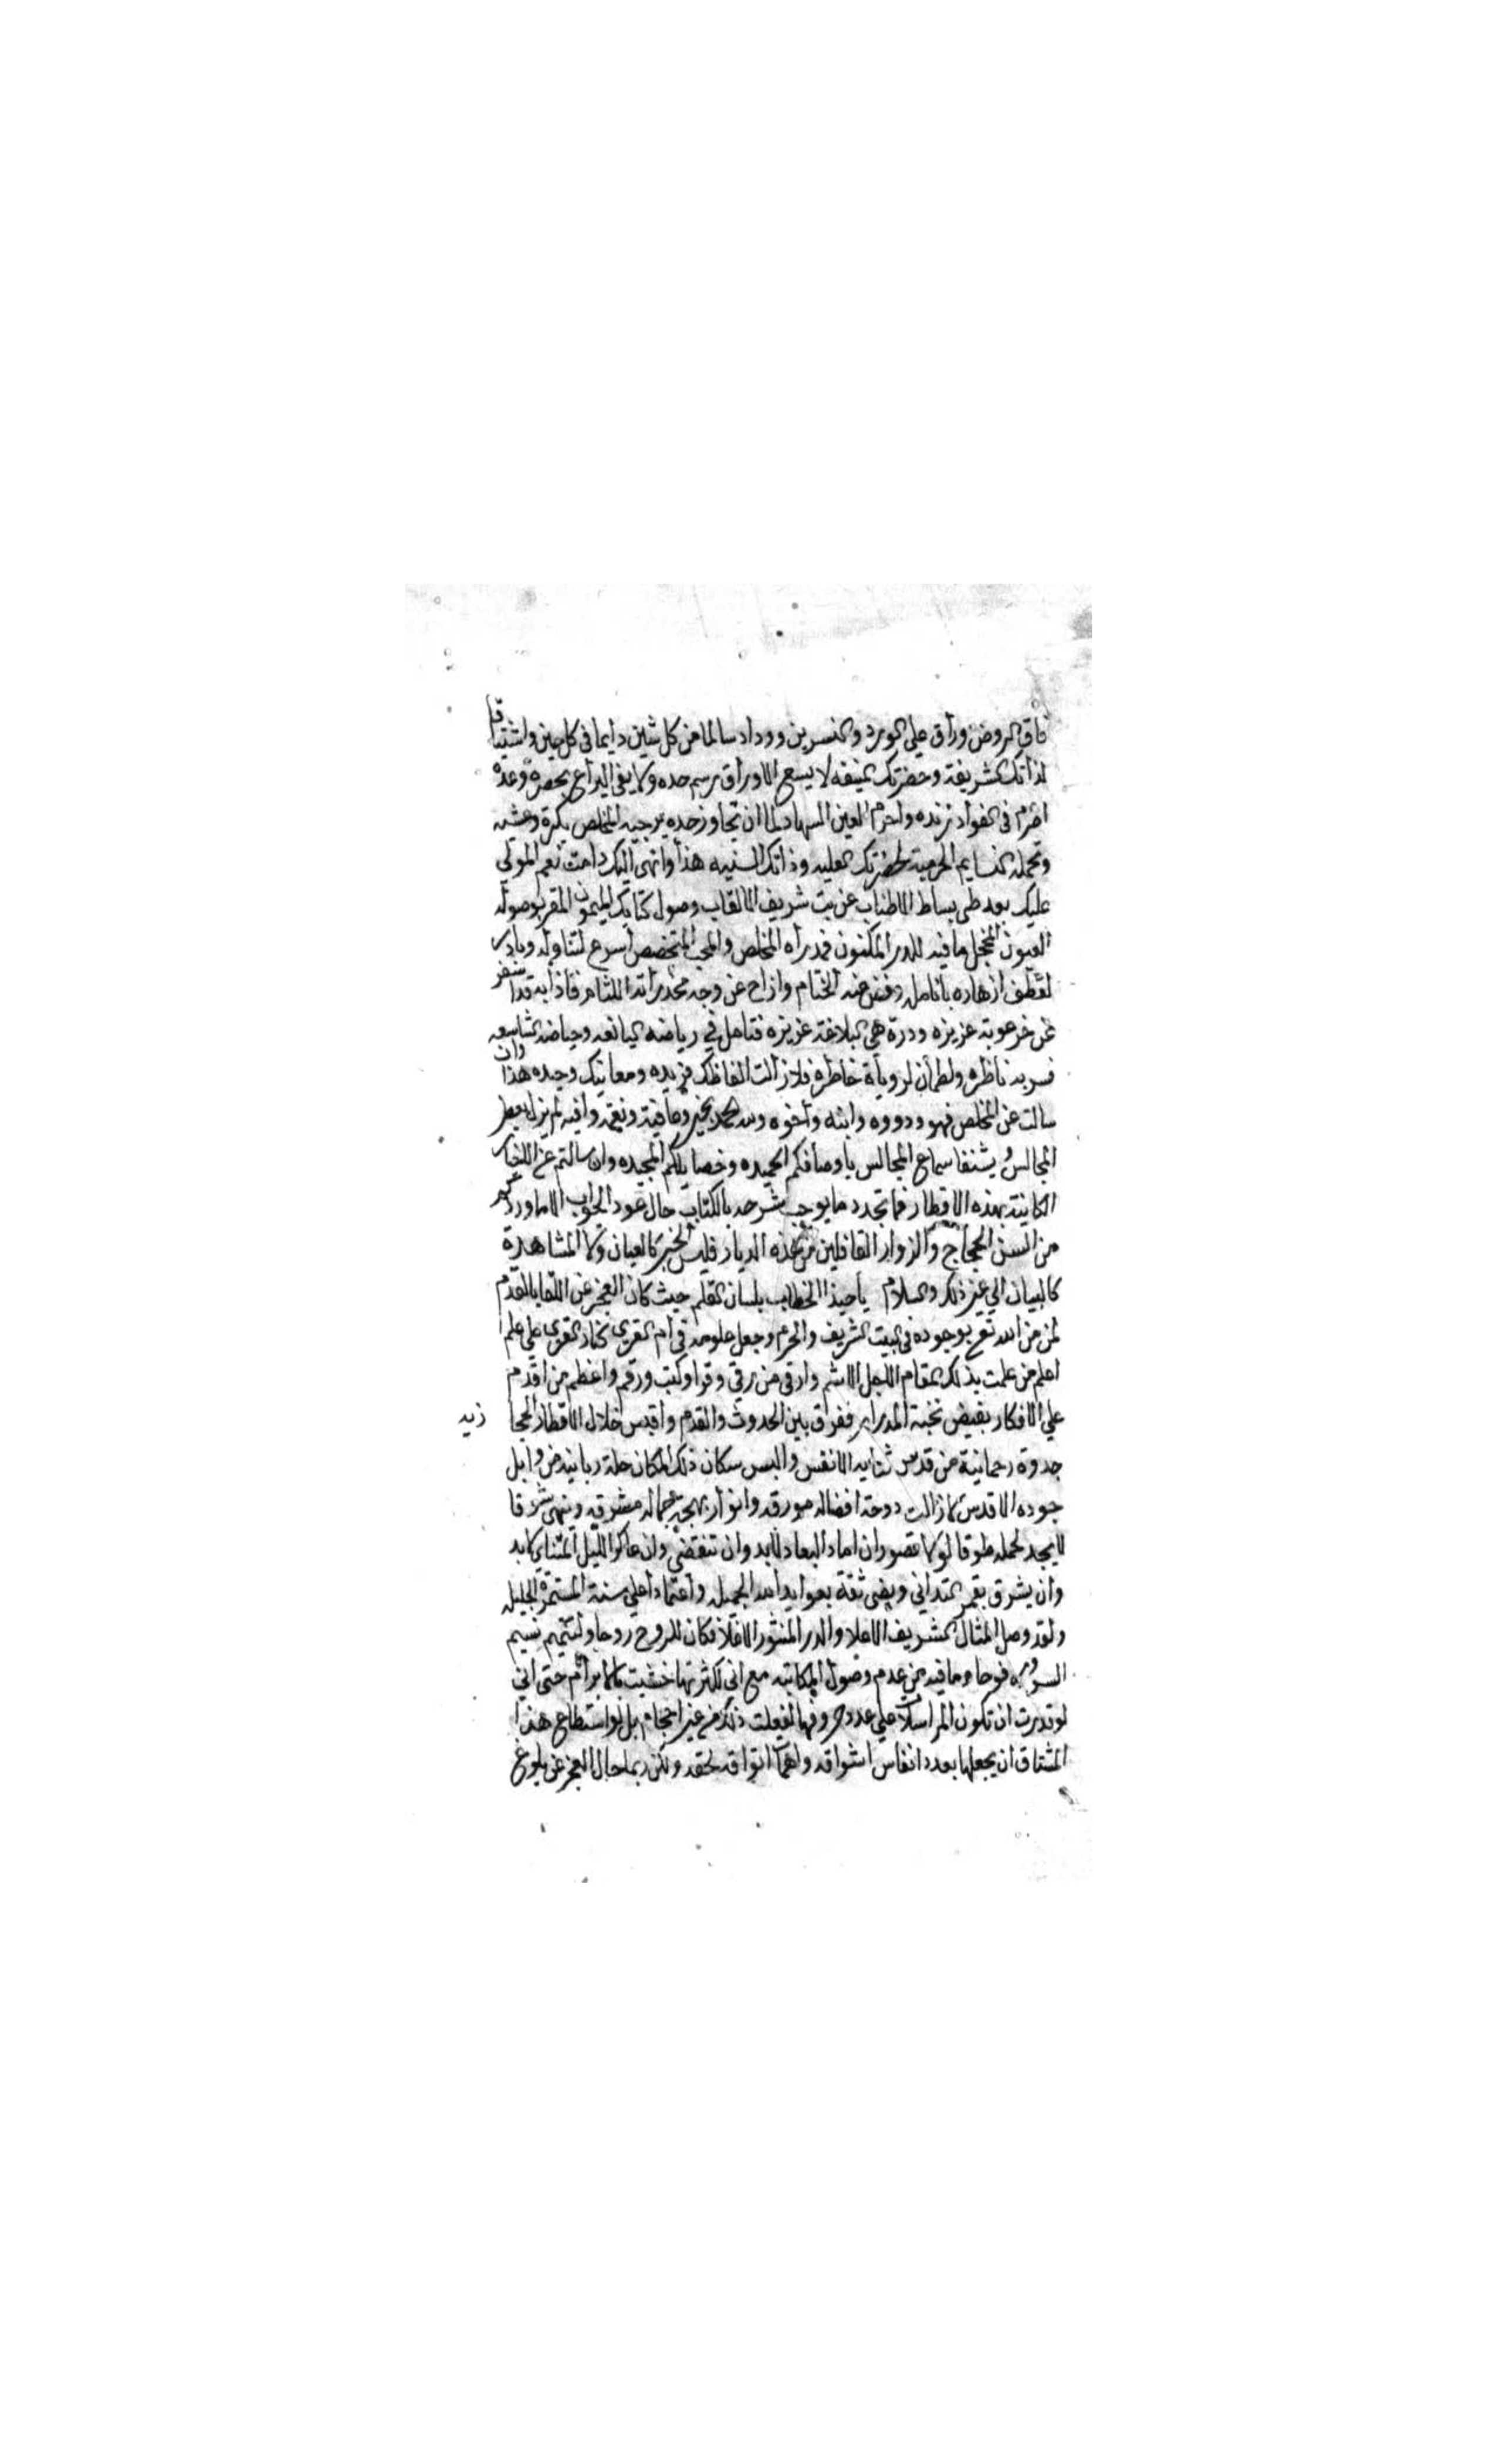 فاق الروض وراق علي الورد والنسرين ووداد سالما من كل شين دايما في كل حين واشتياقا
لذاتك الشريفة وحضرتك المنيفه لا يسع الاوراق رسم حده ولا يفي اليراع بحصره وعده
اضرم في الفواد زنده واحرم العين السهاد لما ان تجاوز حده يرجيه المخلص بكرة وعشيه
وتحمله النسايم الحرمية لحضرتك العليه وذاتك السنيه هذا وانهي اليك دامت نعم المولي
عليك بعد طي بساط الاطناب عن بث شريف الالقاب وصول كتابك الميمون المقر بوصوله
العيون المخجل ما فيه للدر المكنون فمذ رآه المخلص والمحب المتخصص اسرع لتناوله وبادر
لقطف ازهاره بانامله وفض عنه الختام وازاح عن وجه مخدراته اللثام فاذا به قد اسفر
عن خرعوبة عزيزه ودرة هي البلاغة غريزه فتامل في رياضه اليانعه وحياضه الشاسعه
فسر به ناظره واطمأن لروياه خاطره فلا زالت الفاظك فريده ومعانيك وحيده هذا وان
سالت عن المخلص فهو ودووه وابنه وأخوه ولله الحمد بخير وعافية ونعمة وافيه لم يزل يعطر
المجالس ويشنف اسماع المجالس باوصافكم الحميده وخصايلكم المجيده وان سالتم عن الاخبار
الكاينة بهذه الاقطار فما تجدد ما يوجب شرحه بالكتاب حال عود الجواب الا ما ورد
من السن الحجاج والزوار القافلين من هذه الديار فليس الخبر كالعيان ولا المشاهدة
كالبيان الي غير ذلك والسلام يا حبذا الخطاب بلسان القلم حيث كان العجز عن اللقا بالقدم
لمن من الله تع بوجوده في البيت الشريف والحرم وجعل علومه في ام القري كنار القري علي علم
اعلم من علمت بذلك المقام الاجل الاشم وارقي من رقي وقرا وكتب ورقم واعظم من اقدم
علي الافكار بفيض نخبة المدرار ففرق بين الحدوث والقدم واقبس خلال الاقطار الحجا
زيه
جدوة رحمانية من قدس ثنايه الانفس والبس سكان ذلك المكان حلة ربانيه من وابل
جوده الاقدس لا زالت دوحة افضاله مورقه وانوار بهجة جماله مشرقه وينهي شوقا
لا يجد لحمله طوقا لولا تصور ان اماد البعاد لا بد وان تنقضي وان عاكر الليل التنائي لابد
وان يشرق بقمر التداني ويضي ثقة بعوايد الله الجميله واعتمادا علي سنته المستمرة الجليله
ولقد وصل المثال الشريف الاعلا والدر المنثور الاغلا فكان للروح روحا ولشميم نسيم
السرور فوحا وما فيه من عدم وصول المكاتبه مع اني لكثرتها خشيت الابرام حتي اني
لو قدرت ان تكون المراسلات علي عدد حروفها لفعلت ذلك من غير احجام بل لو استطاع هذا
المشتاق ان يجعلها بعدد انفاس اشواقه واهمات اتواقه لحقه ولكن ربما حال العجز عن بلوغ